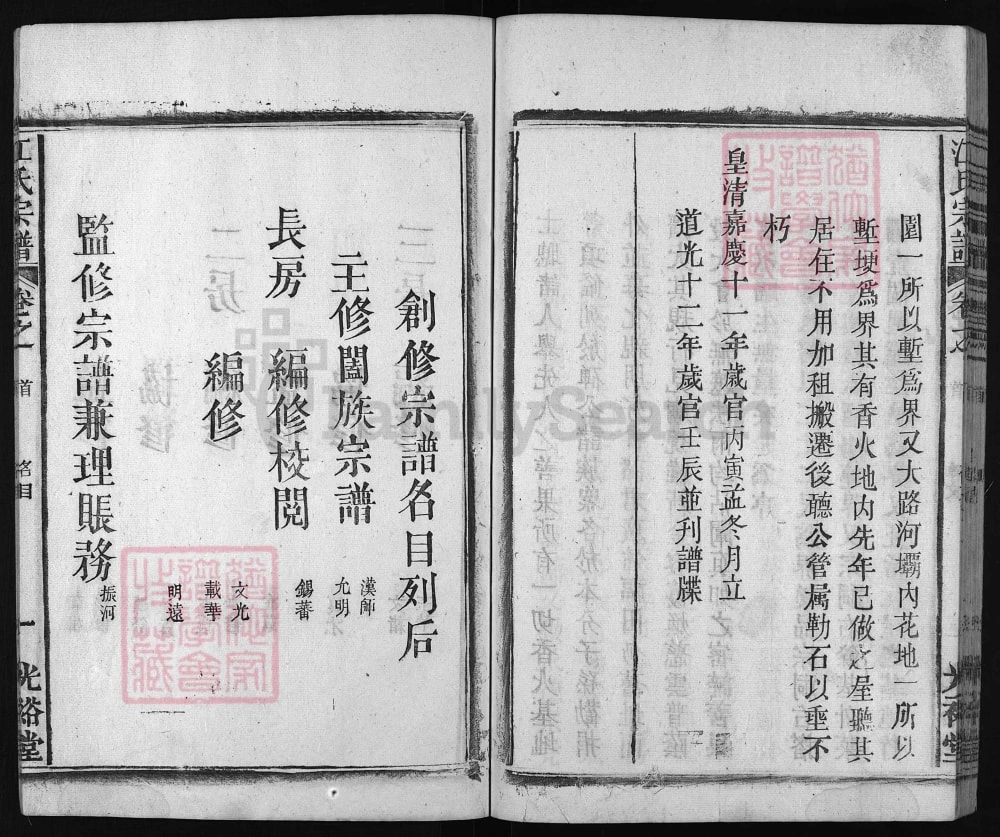 圍一所以塹爲界又大路河壩內花地一所以
塹埂爲界其有香火地內先年已做之屋聽其
居住不用加租搬遷後聽公管屬勒石以垂不
朽
皇清嘉慶十一年歲官丙寅孟冬月立
道光十二年歲官壬辰並刊譜牒
江氏宗譜
光裕堂
創修宗譜名目列后
主修闔族宗譜
漢師
允明
長房 編修校閱
錫蕃
編修
文光
載華
明遠
監修宗譜兼理賬務
振河
江氏宗譜 卷之一 首 名目 一 光裕堂
FamilySearch